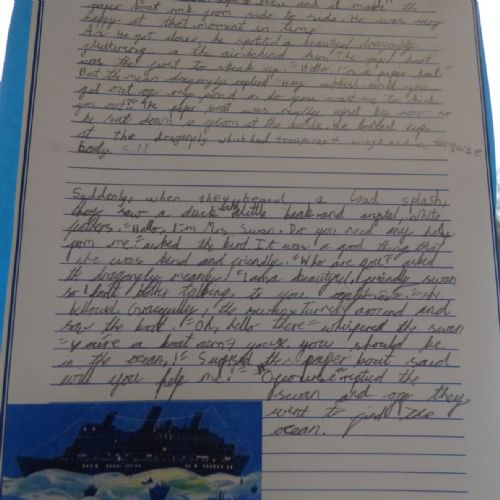 and it made the
paper boat rock from side to side. He was very
happy at that moment in time.
As He got closer, he spotted a beautiful dragonfly
fluttering in the air behind him. The paper boat
was the first to speak up. "Hello, I'm a paper boat"
But the mean dragonfly replied "Hey rubbish could you
get out of my pond or do you want me to
you out?" The paper boat was really upset by now so
he sat down in gloom at the He looked up
at the dragonfly which had transparent wings and a turquise
body.
Suddenly, when they heard a loud splash,
they saw a duck with a little beak and crystal white
fethers. "Hello, I'm Mrs Swan. Do you need any help
from me" asked the bird. It was a good thing that
she was kind and friendly. "Who are you?" asked
the dragonfly meanly. "I am a beautiful, friendly swan
so I don't bother talking to you
bellowd. Gracefully, the turned around and
saw the boat. "Oh, hello there" whisperd the swan
"you're a boat arn't you you should be
in the ocean." the paper boat said
will you help me?" the
swan and off they
went to find the
ocean.